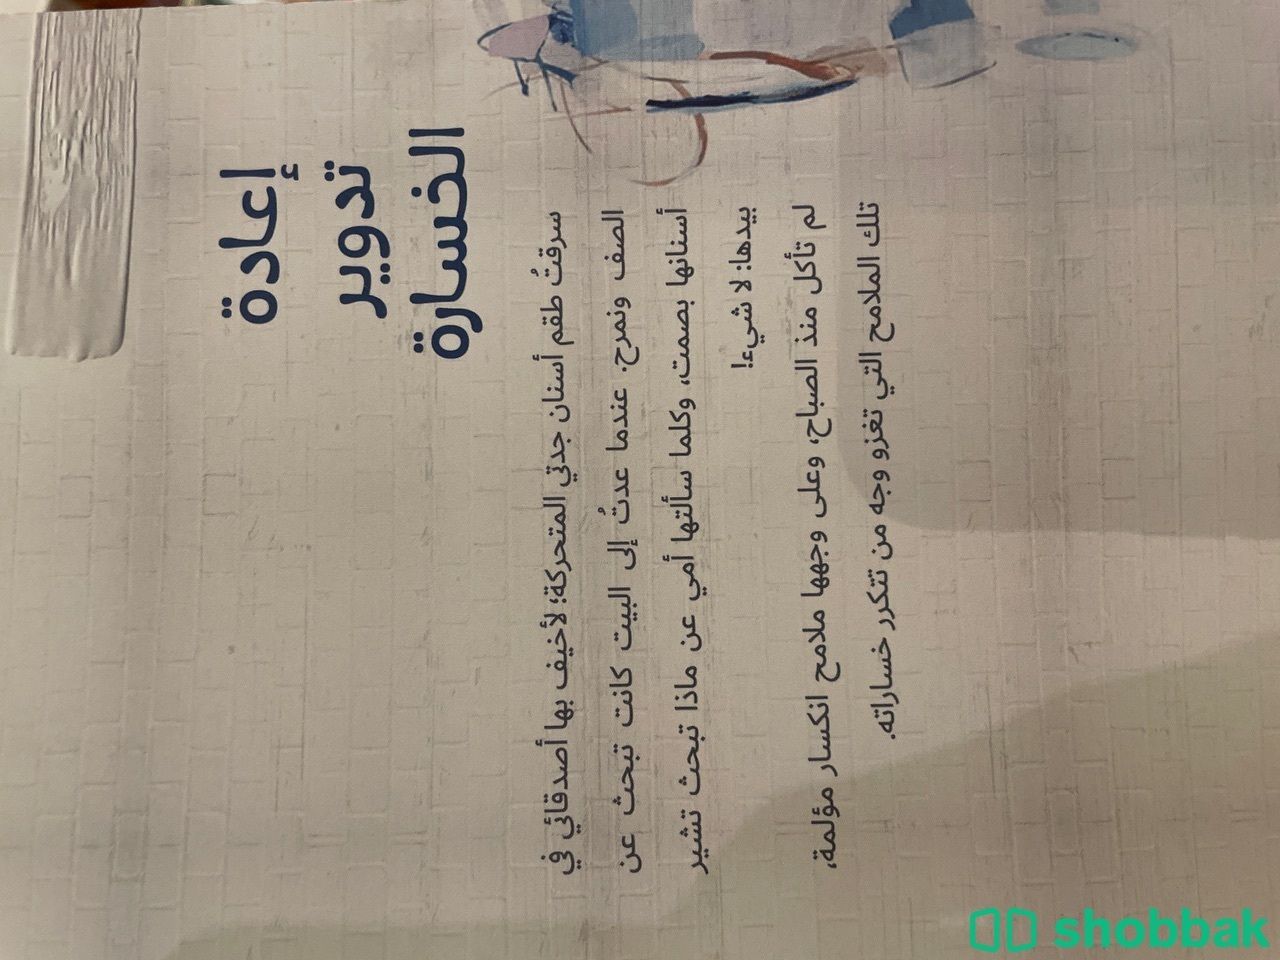 إعادة
تدوير
الخسارة
سرقتُ طقم أسنان جدتي المتحركة؛ لأخيف بها أصدقائي في
الصف ونمرح. عندما عدتُ إلى البيت كانت تبحث عن
أسنانها بصمت، وكلما سألتها أمي عن ماذا تبحث تشير
بيدها: لا شيء!
لم تأكل منذ الصباح، وعلى وجهها ملامح انكسار مؤلمة،
تلك الملامح التي تغزو وجه من تتكرر خساراته.
shobbak